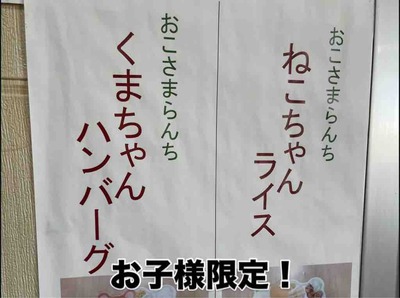 おこさまらんち
ねこちゃん
ライス
おこさまらんち
くまちゃん
ハンバーグ
お子様限定！